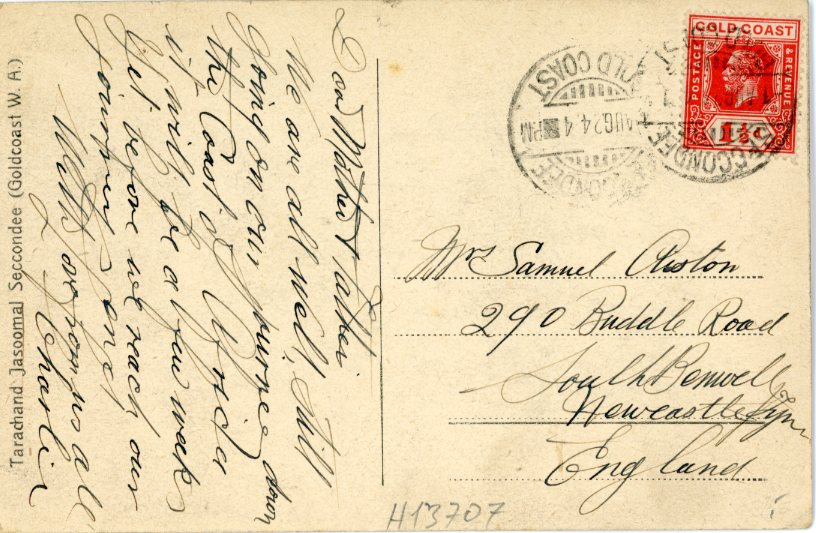 Tarachand Jasoomal Seccondee (Goldcoast W. A.)
Dear Mother & Father
We are all well, still
going on our journey down
the Coast of
it will be a few weeks
yet before we reach our
journeys end
With from us all
Charlie
GOLD COAST
POSTAGE
& REVENUE
1½d
GOLD COAST
AUG 24 4 PM
SECCONDEE
SECCONDEE
Mrs Samuel Auston
290 Buddle Road
South Benwell
Newcastle Tyne
England
H13707